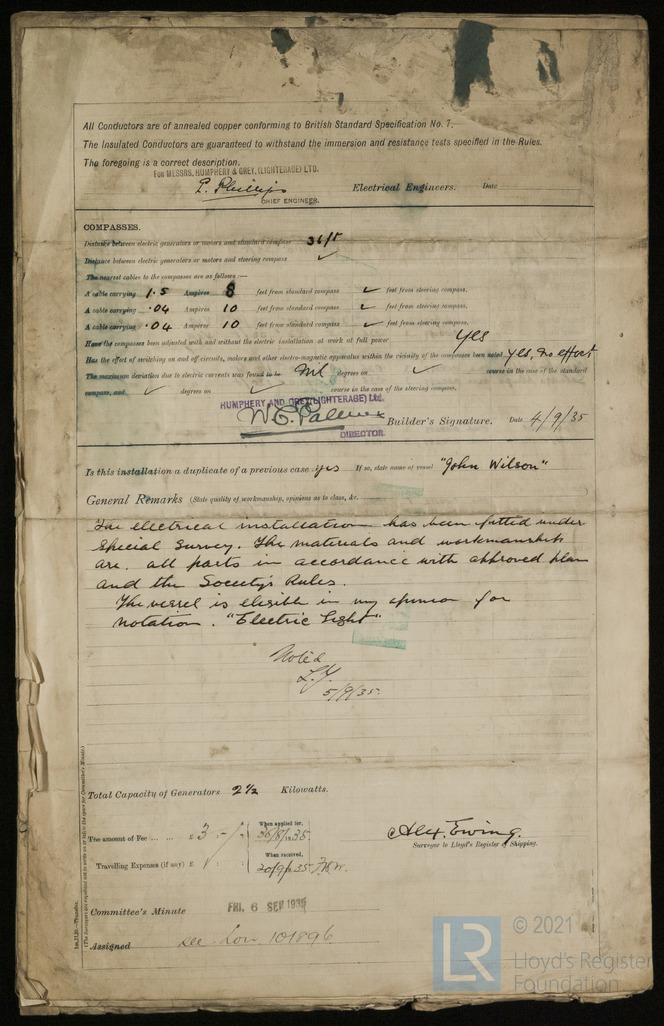 All Conductors are of annealed copper conforming to British Standard Specification No. 7.
The Insulated Conductors are guaranteed to withstand the immersion and resistance tests specified in the Rules.
The foregoing is a correct description.
FOR MESSRS. HUMPHERY & GREY, (LIGHTERAGE) LTD.
P. Phillips Electrical Engineers. Date
CHIEF ENGINEER.
COMPASSES.
Distance between electric generators or motors and standard compass 36 ft
Distance between electric generators or motors and steering compass ✓
The nearest cables to the compasses are as follows:—
A cable carrying 1.5 Ampères 8 feet from standard compass ✓ feet from steering compass.
A cable carrying .04 Ampères 10 feet from standard compass ✓ feet from steering compass.
A cable carrying .04 Ampères 10 feet from standard compass ✓ feet from steering compass.
Have the compasses been adjusted with and without the electric installation at work at full power Yes
Has the effect of switching on and off circuits, motors and other electro-magnetic apparatus within the vicinity of the compasses been noted yes, no effect
The maximum deviation due to electric currents was found to be Nil degrees on ✓ course in the case of the standard
compass, and ✓ degrees on ✓ course in the case of the steering compass.
HUMPHERY AND GREY (LIGHTERAGE) Ltd.
W. E. Palmer Builder's Signature. Date 4/9/35
DIRECTOR
Is this installation a duplicate of a previous case yes If so, state name of vessel "John Wilson"
General Remarks (State quality of workmanship, opinions as to class, &c.
The electrical installation has been fitted under
Special Survey. The materials and workmanship
are all parts in accordance with approved plan
and the Society's Rules.
The vessel is eligible in my opinion for
notation. "Electric Light"
Noted
5/9/35.
Total Capacity of Generators 2½ Kilowatts.
The amount of Fee ... ... £ 3 : - / : When applied for, 19 35
Travelling Expenses (if any) £ : : When received, 20/9/35
Alex. Ewing.
Surveyor to Lloyd's Register of Shipping.
Committee's Minute FRI. 6 SEP 1935
Assigned see Lon 101896
(The Surveyors are requested not to write on or below the space for Committee's Minute.)
© 2021
Lloyd's Register
Foundation
LR